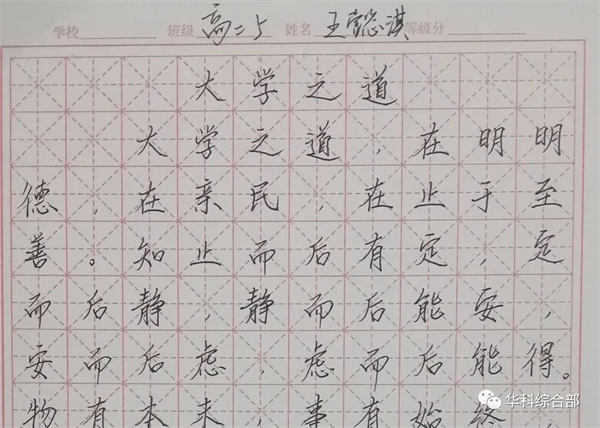 学校 班级 高二5 姓名 王懿淇 等级分
大学之道
大学之道，在明明
德，在亲民，在止于至
善。知止而后有定，定
而后静，静而后能安，
安而后虑，虑而后能得。
物有本末，事有始终，
华科综合部